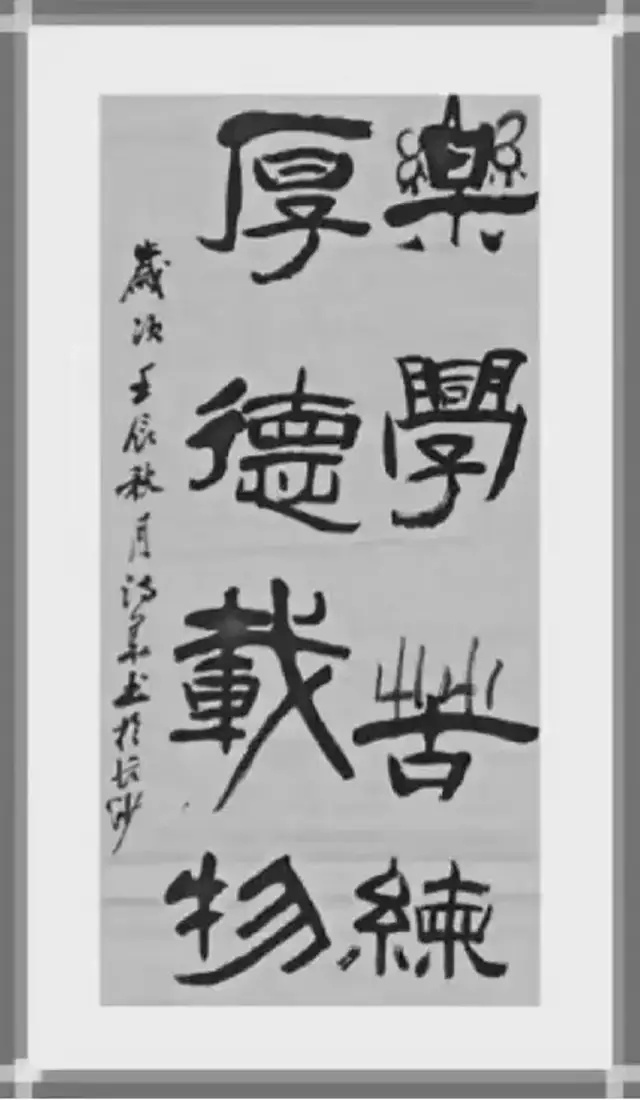 樂學苦練
厚德載物
歲次壬辰秋月鴻集書於長沙